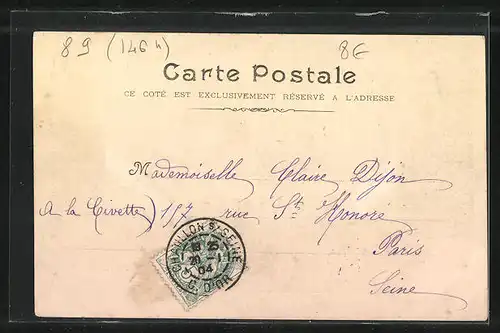 89 (146 h)
8€
Carte Postale
CE COTÉ EST EXCLUSIVEMENT RÉSERVÉ A L'ADRESSE
Mademoiselle Claire Dijon
A la Civette) 157 rue St Honoré
Paris
Seine
CHATILLON S/ SEINE
20 -1
04